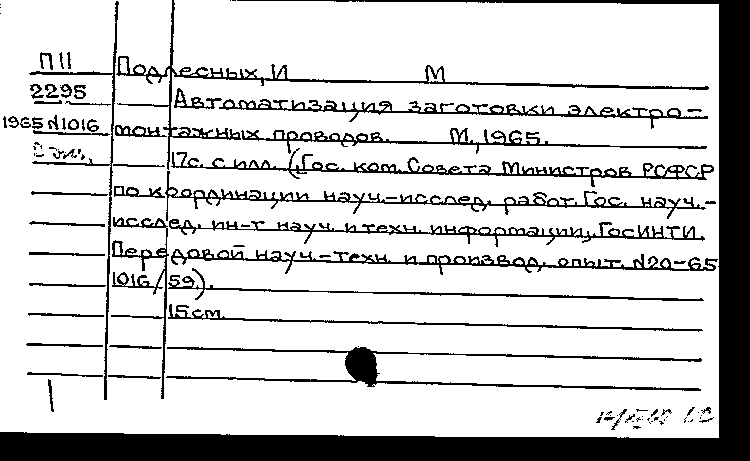 П11
Подлесных, И М
2295
Автоматизация заготовки электро-
1965 №1016
монтажных проводов. М., 1965.
17с. с илл. (Гос. ком. Совета Министров РСФСР
по координации науч.-исслед. работ. Гос. науч.-
исслед. ин-т науч. и техн. информации, ГосИНТИ.
Передовой науч.-техн. и производ. опыт. №20-65-
1016/59).
15см.